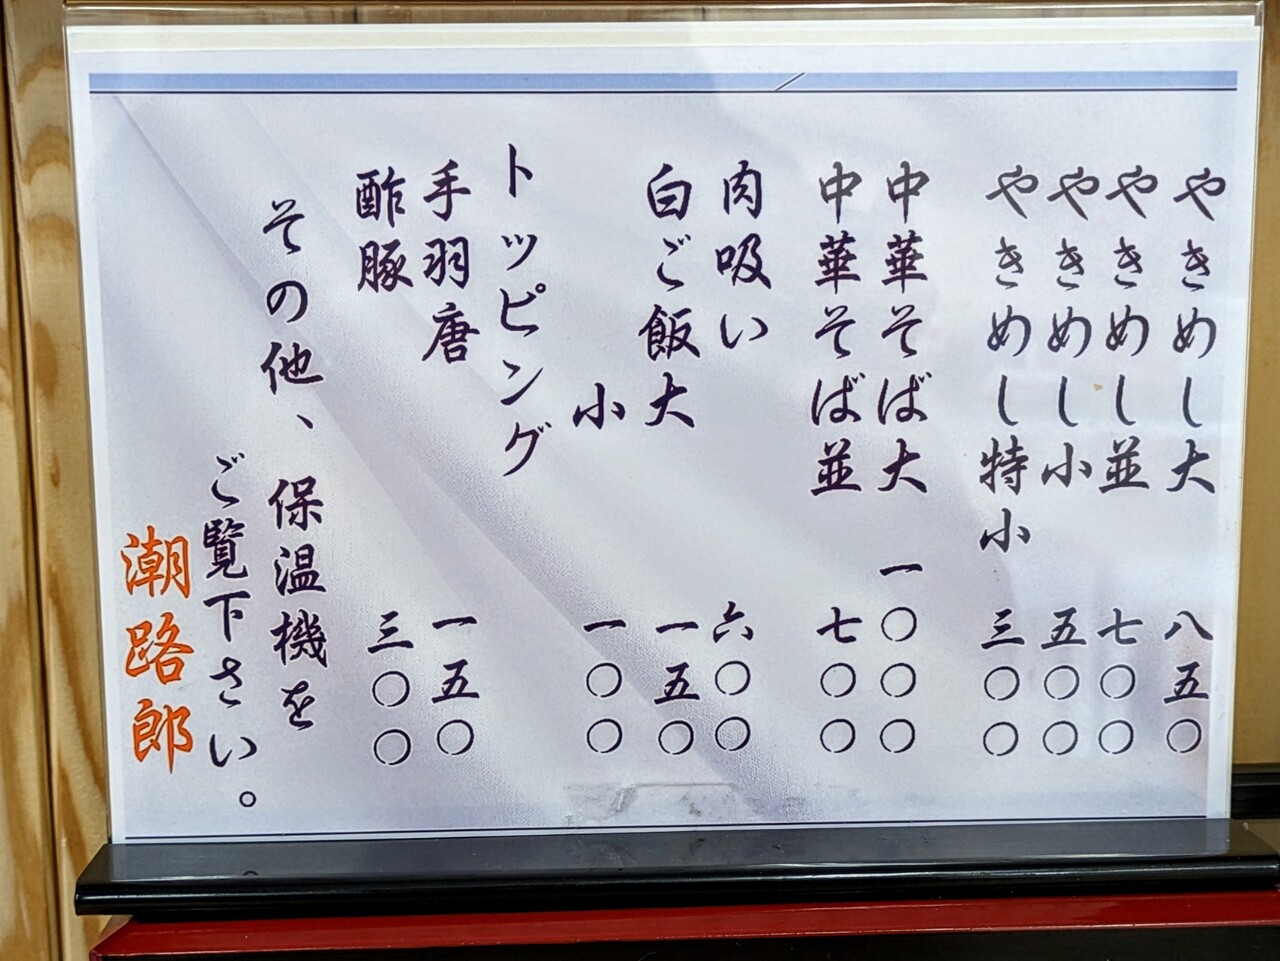 やきめし大 八五〇
やきめし並 七〇〇
やきめし小 五〇〇
やきめし特小 三〇〇
中華そば大 一〇〇〇
中華そば並 七〇〇
肉吸い 六〇〇
白ご飯大 一五〇
小 一〇〇
トッピング
手羽唐 一五〇
酢豚 三〇〇
その他、保温機を
ご覧下さい。
潮路郎